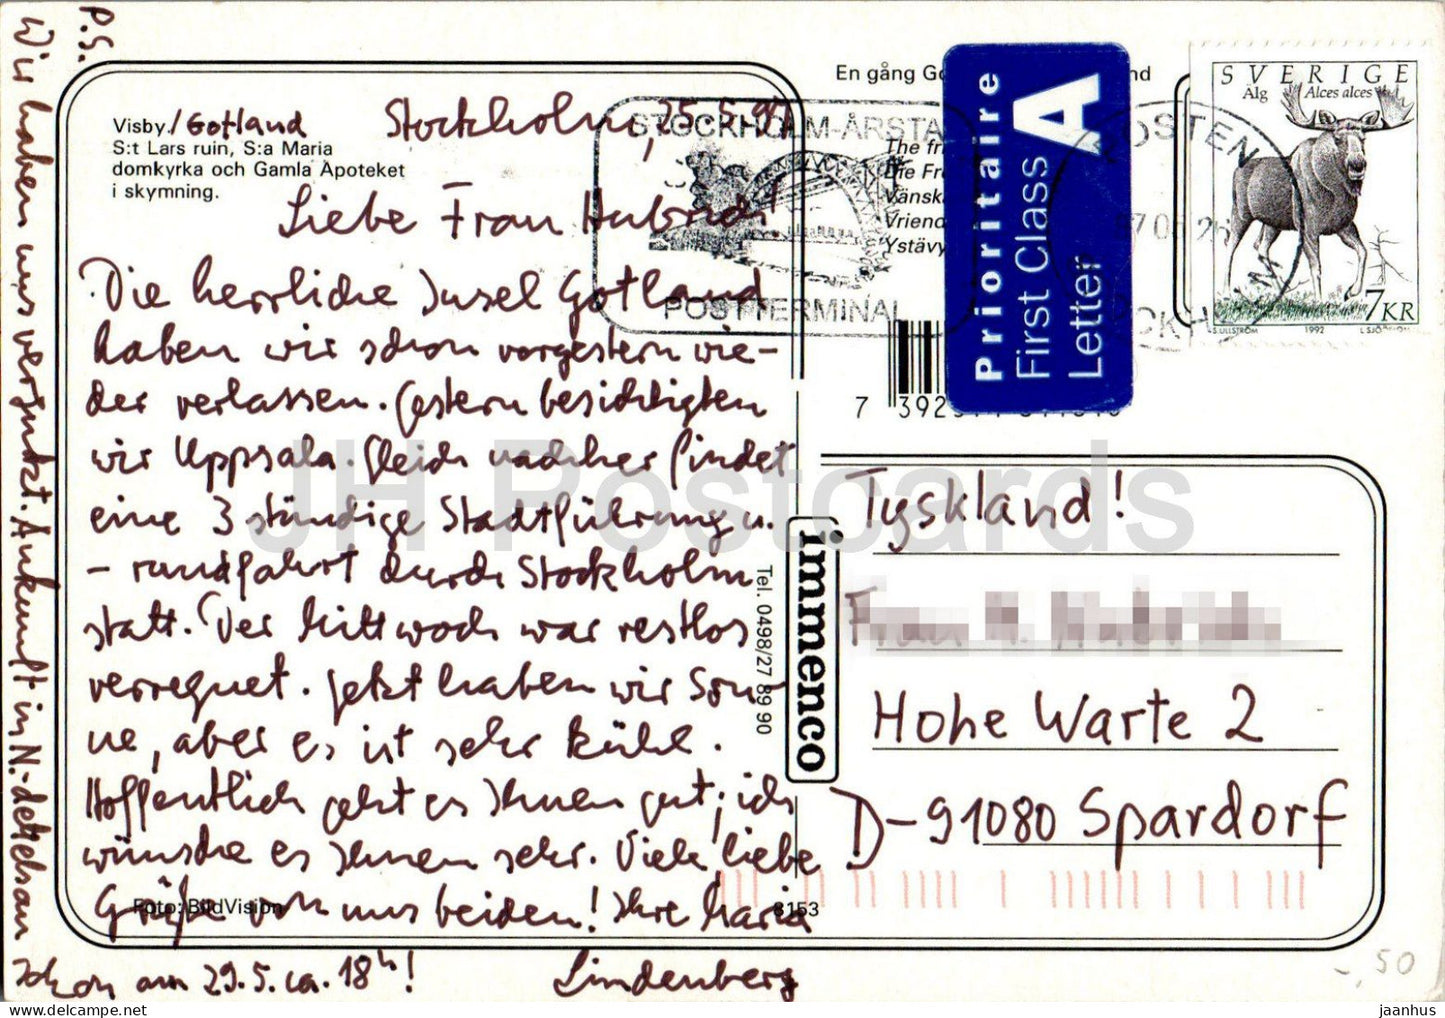 P.S.
Wir haben uns verguckt. Ankunft in N.-
schon am 29.5. ca. 18h!
Visby./Gotland
S:t Lars ruin, S:a Maria
domkyrka och Gamla Apoteket
i skymning.
Stockholm, 25.5.97
Liebe Frau
Die herrliche Insel Gotland
haben wir schon vorgestern wie-
der verlassen. Gestern besichtigten
wir Uppsala. Gleich nachher findet
eine 3 stündige Stadtführung u.
- rundfahrt durch Stockholm
statt. Der Mittwoch war restlos
verregnet. Jetzt haben wir Son-
ne, aber es ist sehr kühl.
Hoffentlich geht es Ihnen gut; ich
wünsche es Ihnen sehr. Viele liebe
Grüße von uns beiden! Ihre Maria
Lindenberg
Foto: BildVision
8153
En gång Go
nd
The fr
Die Fr
Vänsk
Vriend
Ystävy
STOCKHOLM-ÅRSTA
POSTTERMINAL
POSTEN
97 05 26
OCKHOLM
A
Prioritaire
First Class
Letter
SVERIGE
Älg Alces alces
7KR
S. ULLSTRÖM 1992
7 392
immenco
Tel. 0498/27 89 90
Tyskland!
Hohe Warte 2
D-91080 Spardorf
-,50
JH Postcards
jaanhus